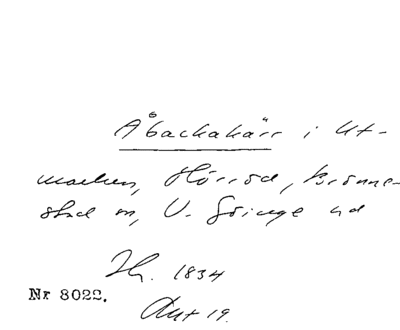 Åbackakärr i Ut-
marken, Hörröd, Brönne-
stad sn, V. Göinge hd
Th. 1834
Nr 8022.
Akt 19.